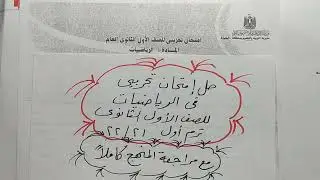 امتحان تجريبى للصف الأول الثانوى العام
المـــادة : الرياضيات
حل إمتحان تجريبى
فى الرياضيات
للصف الأول الثانوى
ترم أول ٢٢/٢١
مع مراجعة المنهج كاملاً